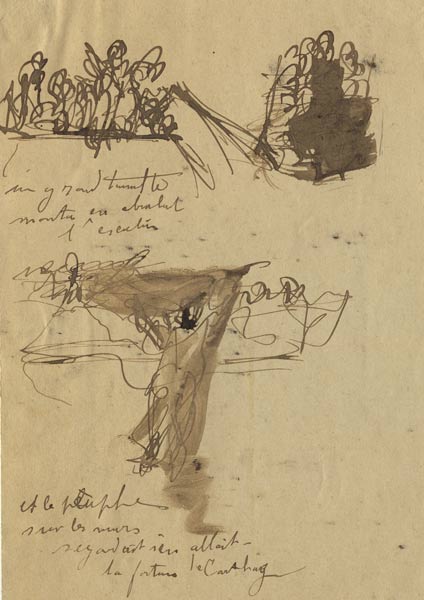 un grand tumulte
monta en
l'escalier
et le peuple
sur les murs
regardait s'en allait
la fortune de Carthage